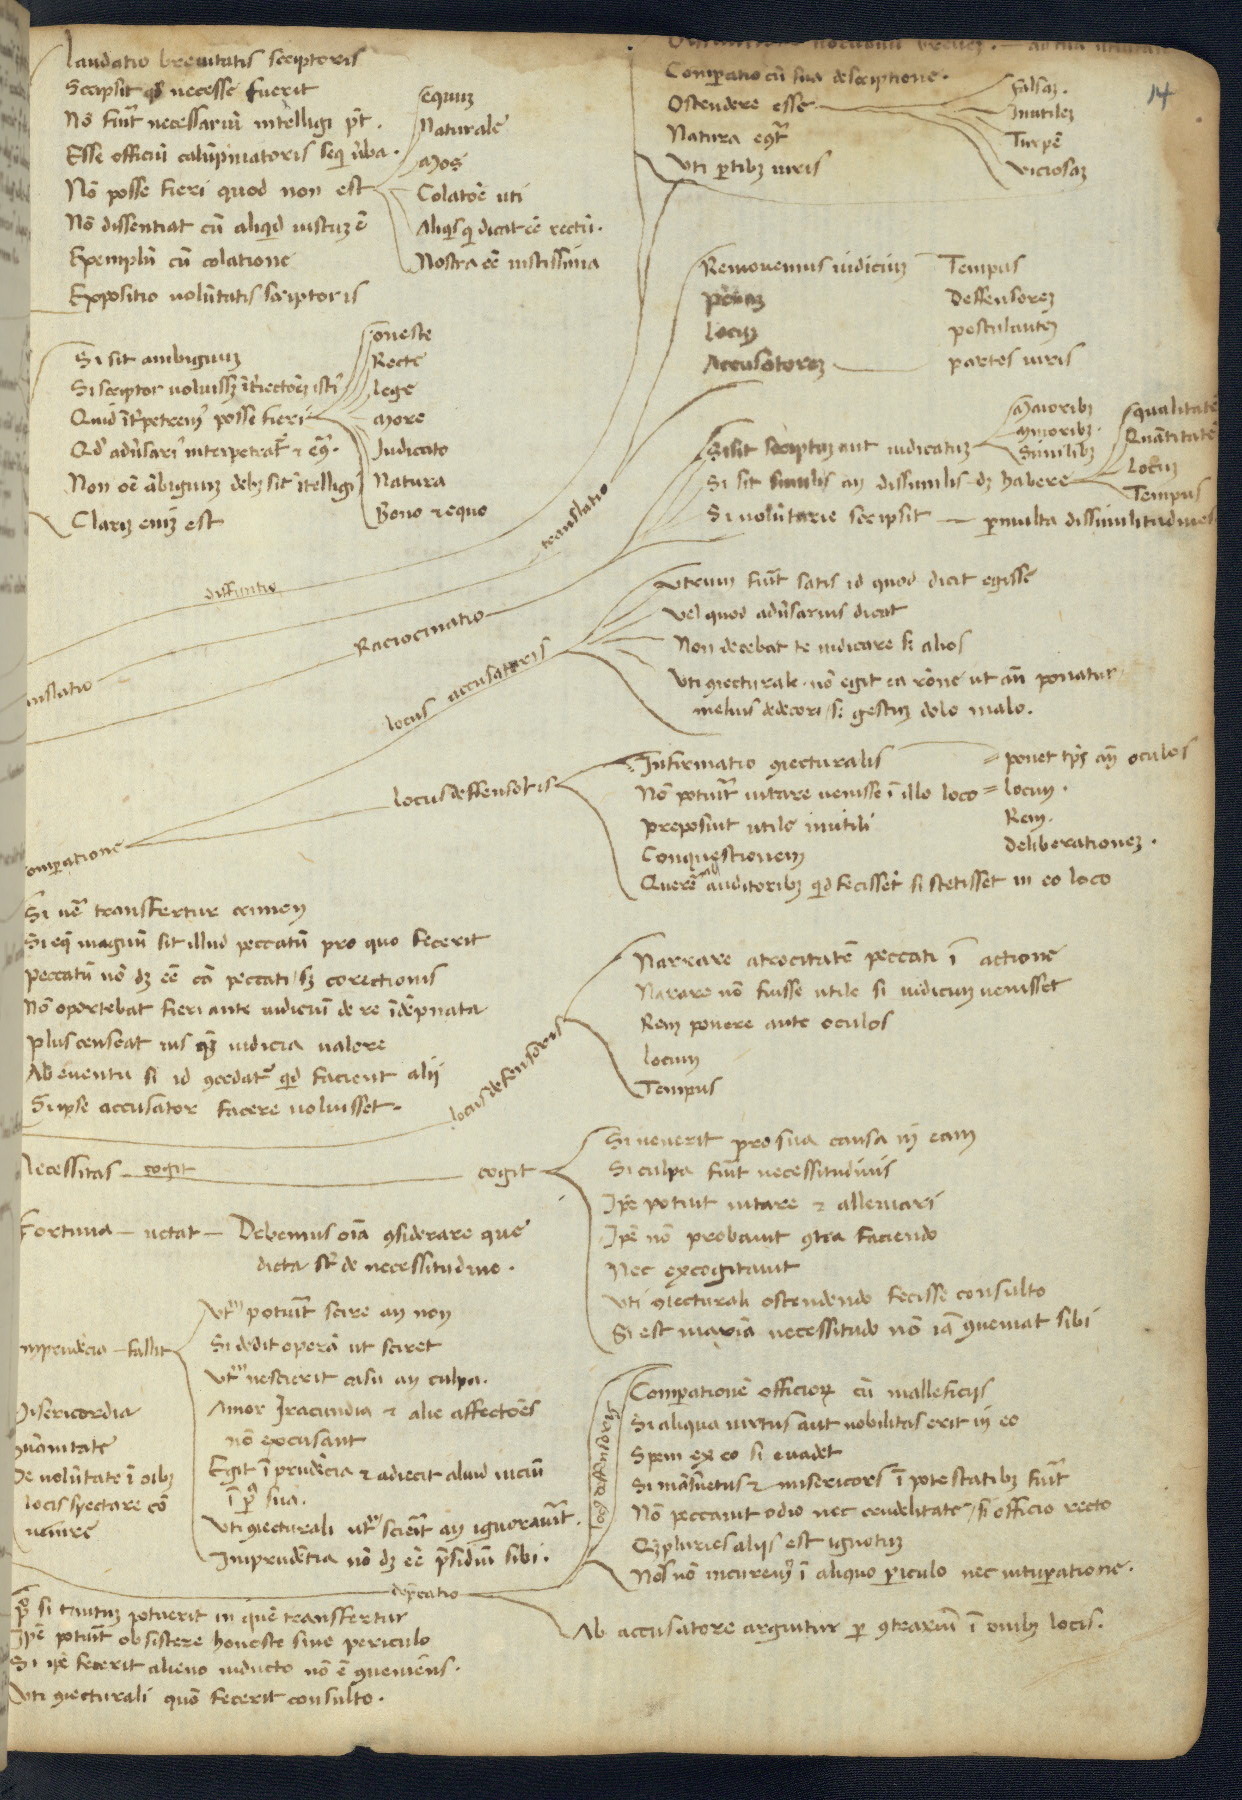 laudatio breuitatis scriptoris
Scripsit qd necesse fuerit
Nō fuit necessariū intelligi pt.
Esse officiū calūpniatoris seq̄ ūba.
Nō posse fieri quod non est
Nō dissentiat cū aliqid iustuʒ ē
Exemplū cū colatione
Expositio uolūtatis scriptoris
equuʒ
Naturale
Mos
Colatōe uti
Aliqis qi dicat ēē rectū.
Nostra ēē iustissima
Comperatio cū sua descriptione.
Ostendere esse
Natura eqt
Uti ptibʒ iuris
falsaʒ.
Inutileʒ
Turpē
Viciosaʒ
14
Remouemus iudiciuʒ
penaʒ
locuʒ
Accusatoreʒ
Tempus
Deffensoreʒ
postulanteʒ
partes iuris
Si sit ambiguuʒ
Quid īt̄petrem᷒ posse fieri
Non oē ābiguuʒ debʒ sit ītelligi
Claruʒ eniʒ est
oneste
Recte
lege
More
Iudicato
Natura
Bono et equo
Si sit scriptuʒ aut iudicatuʒ
Si sit similis an dissimilis dʒ habere
Si uolūtarie scripsit — pmulta dissimilitudines
Maioribʒ
Minoribʒ.
Similibʒ
qualitatē
Quātitatē
Locuʒ
Tempus
diffinitio
translatio
Raciocinatio
locus accusatoris
Utrum fuit satis id quod dicit egisse
Vel quod adūsarius dicat
Non decebat te iudicare sʒ alios
Uti ꝯiecturale. nō egit ea rōne ut an̄ ponatur
melius dedecori sʒ gestuʒ dolo malo.
nslatio
locus deffensoris
Infirmatio ꝯiecturalis
Nō potuit uitare uenisse ī illo loco
preposuit utile inutili
Conquestionem
Querē ab auditoribʒ qid fecisset si stetisset in eo loco
ponet tps an̄ oculos
locum.
Rem.
Deliberationeʒ.
omperatione
Si uē transfertur crimen
Si eq̄ magnū sit illud peccatū pro quo fecerit
Peccatū nō dʒ ēē cā peccati sʒ corectionis
Nō oportebat fieri ante iudiciū de re īdēpnata
Plus censeat ius qʒ iudicia ualere
Ab euentu si id ꝯcedat᷒ qid facient alij
Si ipse accusator facere uoluisset.
locus defensoris
Narrare atrocitatē peccati ī actione
Narare nō fuisse utile si iudicium uenisset
Rem ponere ante oculos
locum
Tempus
Necessitas cogit
cogit
Si uenerit pro sua causa in eam
Si culpa fuit necessitudinis
Ipē potuit uitare et alleuiari
Ipē nō probauit ꝯtra faciendo
Nec excogitauit
Uti ꝯiecturali ostendendo fecisse consulto
Si est maxīa necessitudo nō iā ꝯueniat sibi
Fortuna — uetat — Debemus oīa ꝯsiderare que
dicta st̄ de necessitudine.
mprudēcia — fallit
Ut᷒ potuit scire an non
Si dedit operā ut sciret
Ut᷒ nescierit casu an culpa.
Amor Iracundia et alie affectōes
nō excusant
Egit ī prudēcia et adiecit aliud uiciū
Uti ꝯiecturali ut᷒ scieit an ignorauit.
Imprudētia nō dʒ ēē p̄sidiū sibi.
Misericordia
umanitate
De uolūtate ī oībʒ
locis spectare cō
uenire
loc᷒ deffensoris
Comperationē officioꝝ cū malleficijs
Si aliqua uirtus aut nobilitas erit in eo
Spem ex eo si euadet
Si māsuetus et misericors ī potestatibʒ fuit
Nō peccauit odio nec crudelitate sʒ officio recto
Qʒ pluries alijs est ignotuʒ
Nos nō incurem᷒ ī aliquo piculo nec uituperatione.
dep̄catio
Ab accusatore arguitur p ꝯtrariū ī oībʒ locis.
si tantuʒ potuerit in quē transfertur
Ipē potuit obsistere honeste sine periculo
Si ipē fecerit alieno inducto nō ē ꝯueniēs.
Uti ꝯiecturali quō fecerit consulto.